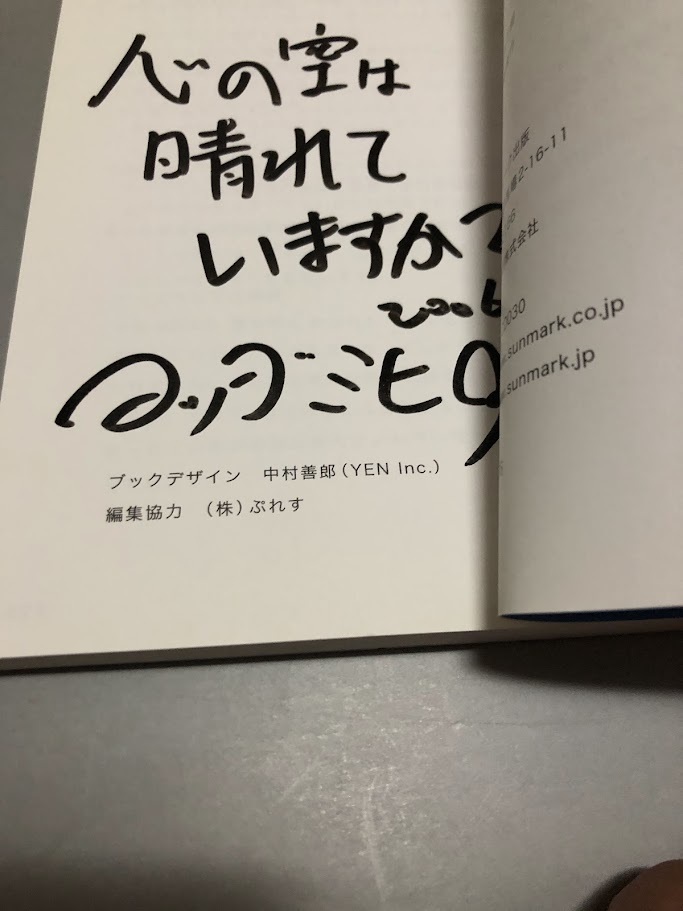 心の空は
晴れて
いますか
2006
マツダミヒロ
ブックデザイン　中村善郎（YEN Inc.）
編集協力　（株）ぷれす
出版
2-16-11
株式会社
0030
.sunmark.co.jp
.sunmark.jp